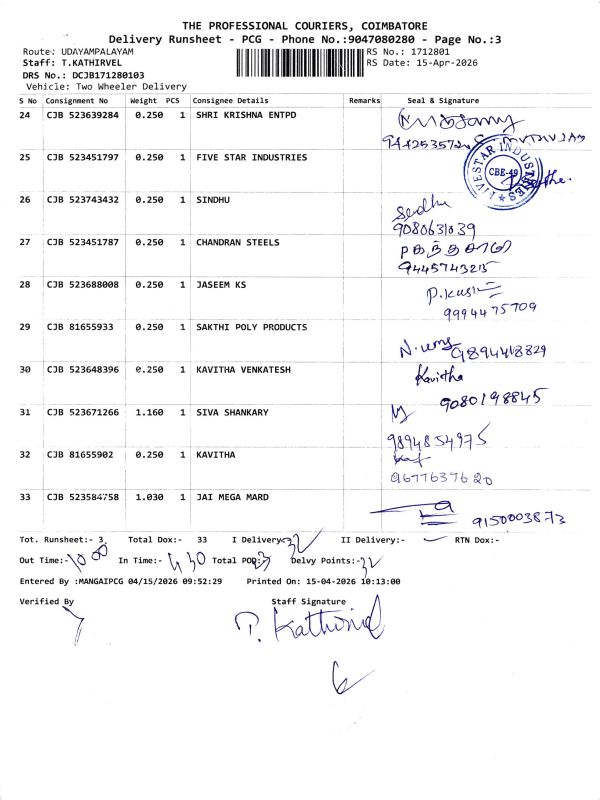 THE PROFESSIONAL COURIERS, COIMBATORE
Delivery Runsheet - PCG - Phone No.:9047080280 - Page No.:3
Route: UDAYAMPALAYAM RS No.: 1712801
Staff: T.KATHIRVEL RS Date: 15-Apr-2026
DRS No.: DCJB171280103
Vehicle: Two Wheeler Delivery
S No Consignment No Weight PCS Consignee Details Remarks Seal & Signature
24 CJB 523639284 0.250 1 SHRI KRISHNA ENTPD
25 CJB 523451797 0.250 1 FIVE STAR INDUSTRIES
FIVESTAR INDUSTRIES
CBE-49
26 CJB 523743432 0.250 1 SINDHU
9080631039
27 CJB 523451787 0.250 1 CHANDRAN STEELS
9445743215
28 CJB 523688008 0.250 1 JASEEM KS
9994475709
29 CJB 81655933 0.250 1 SAKTHI POLY PRODUCTS
30 CJB 523648396 0.250 1 KAVITHA VENKATESH Kavitha
9080198845
31 CJB 523671266 1.160 1 SIVA SHANKARY
9894854975
32 CJB 81655902 0.250 1 KAVITHA
9677637620
33 CJB 523584758 1.030 1 JAI MEGA MARD
9150003873
Tot. Runsheet:- 3 Total Dox:- 33 I Delivery:- 32 II Delivery:- RTN Dox:-
Out Time:- 10 00 In Time:- 4 30 Total POD:- 3 Delvy Points:- 32
Entered By :MANGAIPCG 04/15/2026 09:52:29 Printed On: 15-04-2026 10:13:00
Verified By Staff Signature